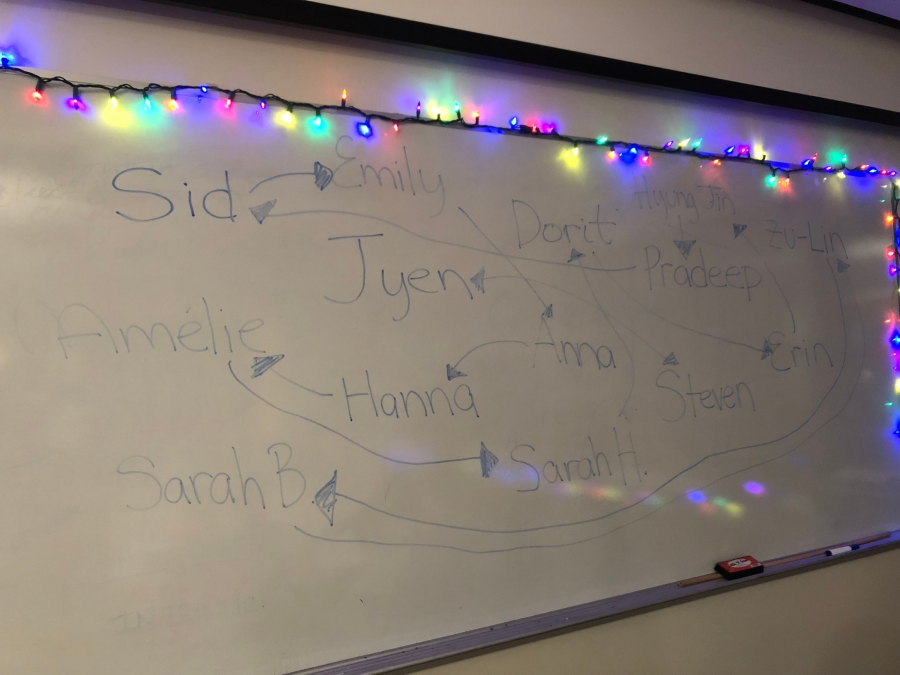 Sid
Emily
Dorit
Hyung Jin
Zu-Lin
Jyen
Pradeep
Amélie
Anna
Erin
Hanna
Steven
Sarah B.
Sarah H.